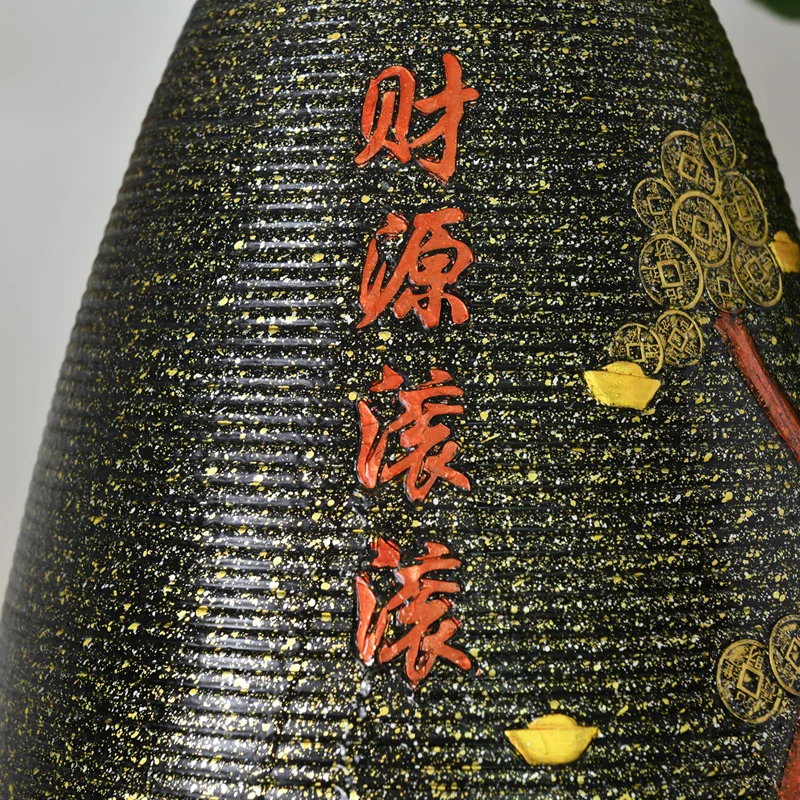 财源滚滚